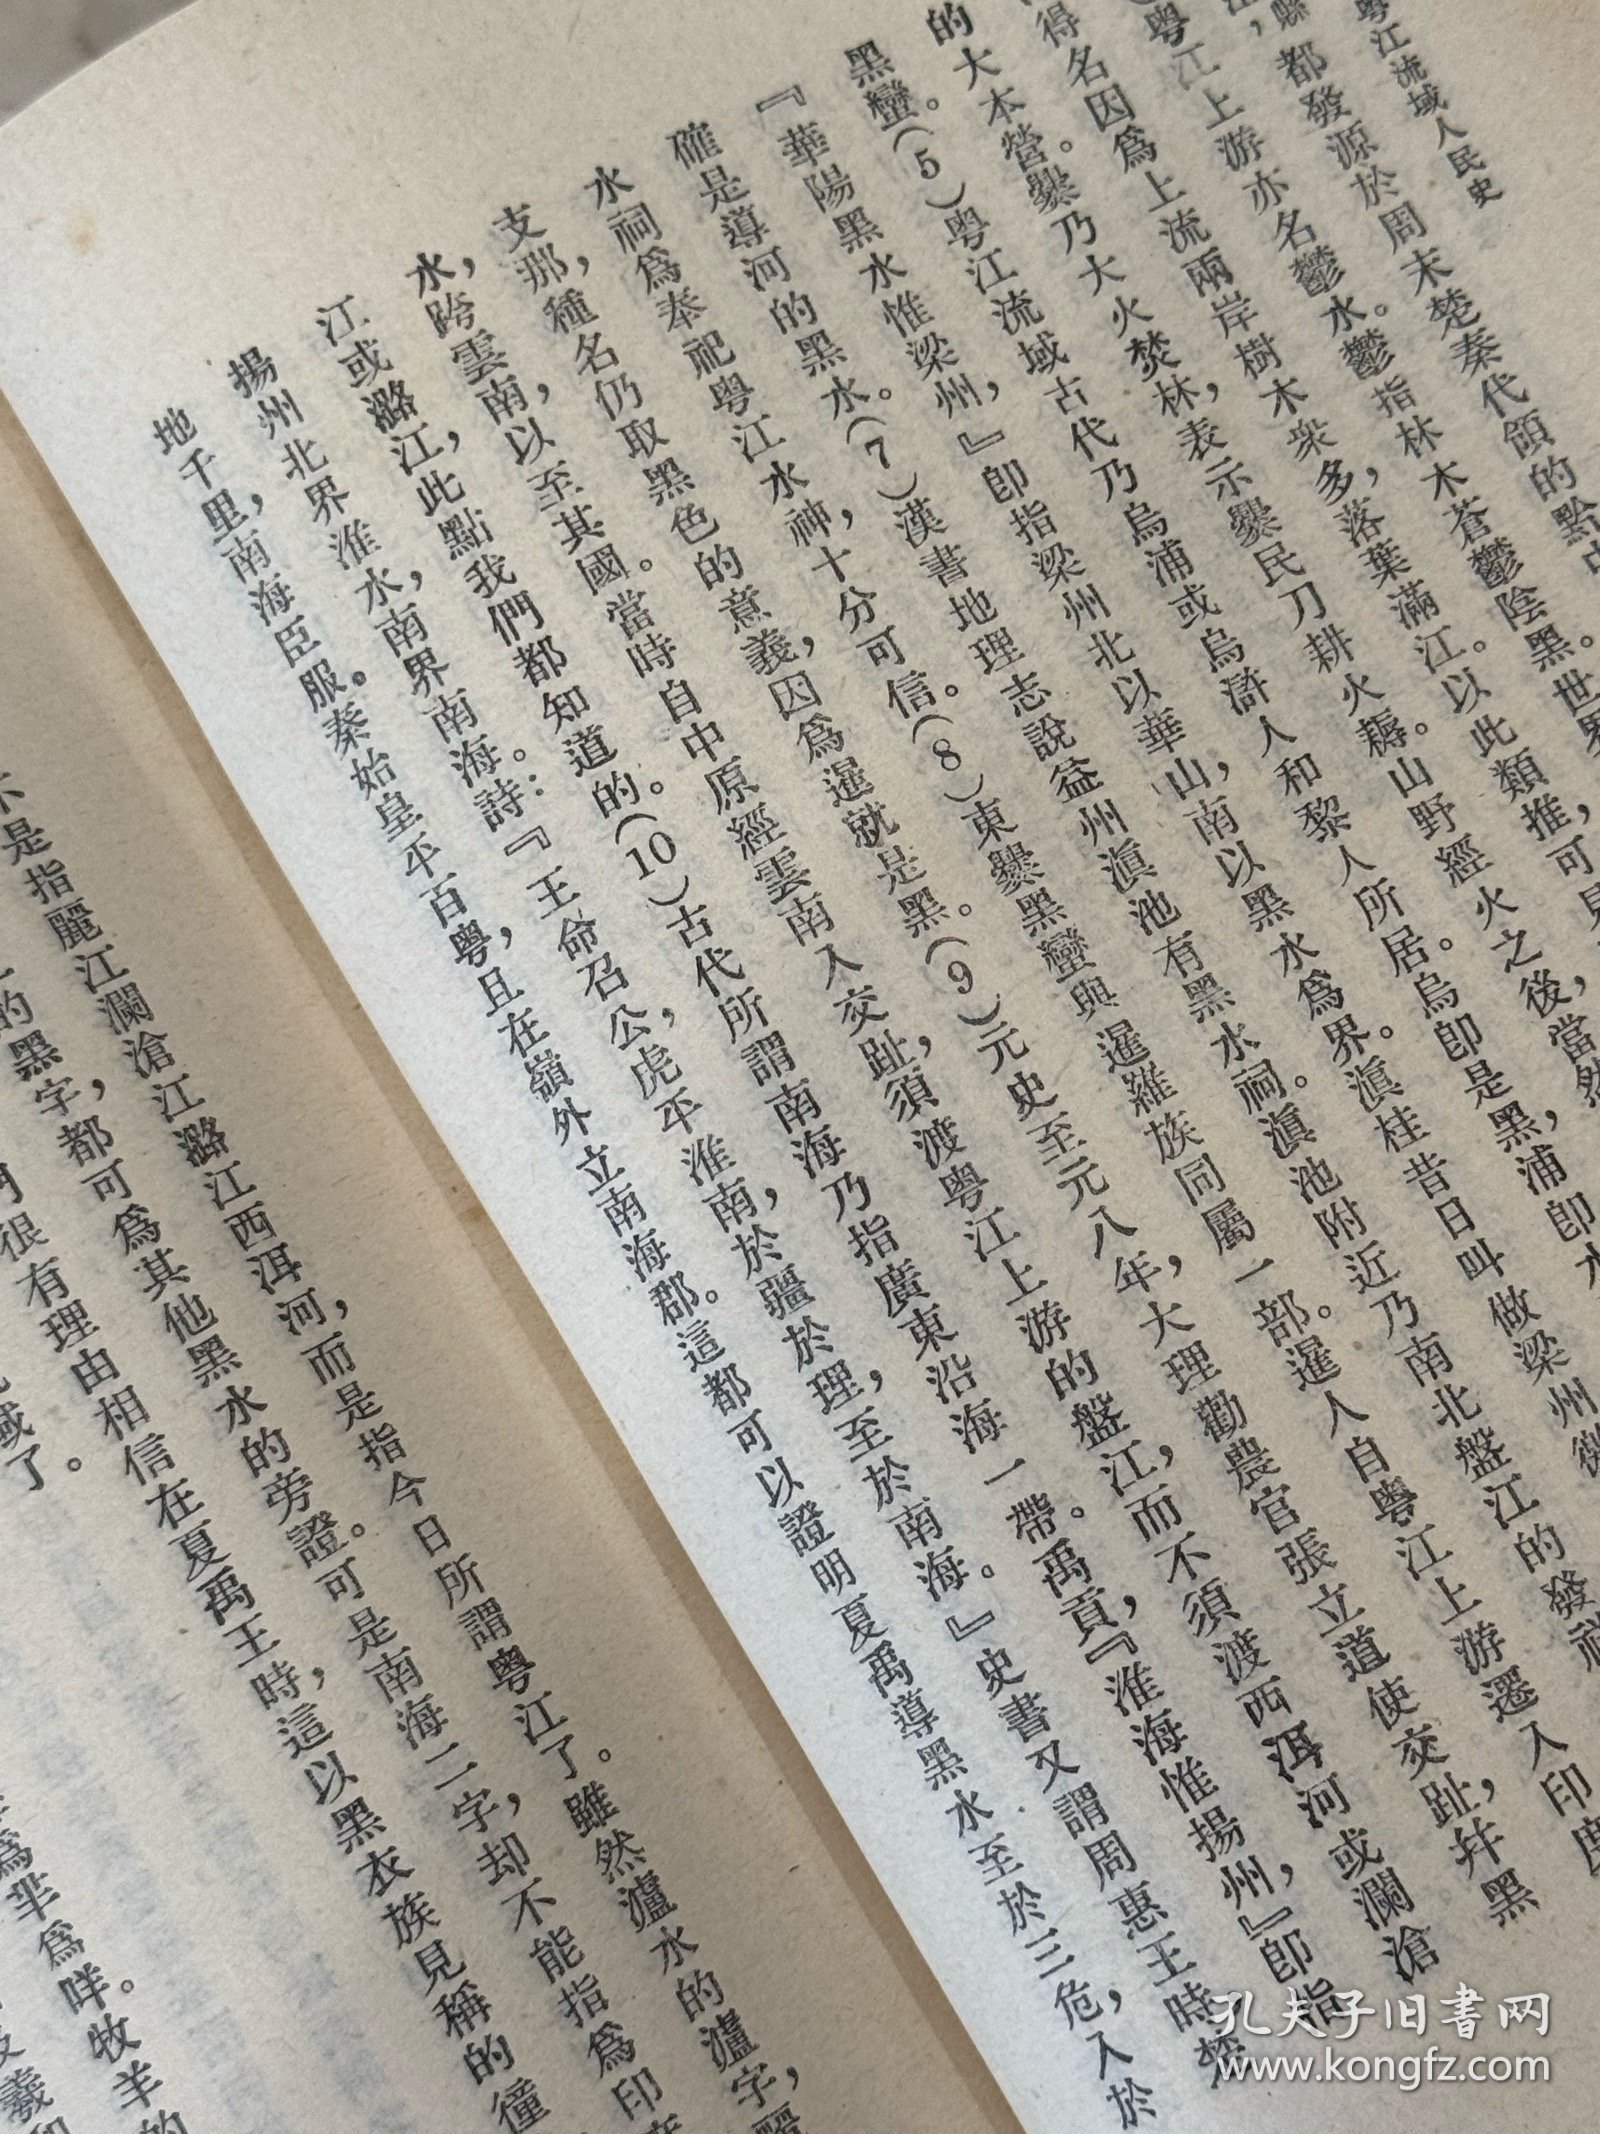 粵江流域人民史
縣都發源於周末楚秦代領的黔中
粵江上游亦名鬱水。鬱指林木蒼鬱陰黑。世界
得名因爲上流兩岸樹木衆多，落葉滿江。以此類推，可見
的大本營。爨乃大火焚林，表示爨民刀耕火耨。山野經火之後，當然
黑蠻。(5)粵江流域古代乃烏浦或烏滸人和黎人所居。烏卽是黑，浦卽水
『華陽黑水惟梁州，』卽指梁州北以華山，南以黑水爲界。滇桂昔日叫做梁州徼
確是導河的黑水。(7)漢書地理志說益州滇池有黑水祠。滇池附近乃南北盤江的發祥
水祠爲奉祀粵江水神，十分可信。(8)東爨黑蠻與暹羅族同屬一部。暹人自粵江上游遷入印度
支那，種名仍取黑色的意義，因爲暹就是黑。(9)元史至元八年，大理勸農官張立道使交趾，幷黑
水，跨雲南，以至其國。當時自中原經雲南入交趾，須渡粵江上游的盤江，而不須渡西洱河或瀾滄
江或潞江，此點我們都知道的。(10)古代所謂南海乃指廣東沿海一帶。禹貢，『淮海惟揚州，』卽指
揚州北界淮水，南界南海。詩：『王命召公虎平淮南，於疆於理，至於南海。』史書又謂周惠王時楚
地千里，南海臣服。秦始皇平百粵，且在嶺外立南海郡。這都可以證明夏禹導黑水至於三危，入於
不是指麗江瀾滄江潞江西洱河，而是指今日所謂粵江了。雖然瀘水的瀘字，
的黑字，都可爲其他黑水的旁證。可是南海二字，却不能指爲印
們很有理由相信在夏禹王時，這以黑衣族見稱的僮
域了。
爲羋爲咩。牧羊的
孔夫子旧書网
www.kongfz.com